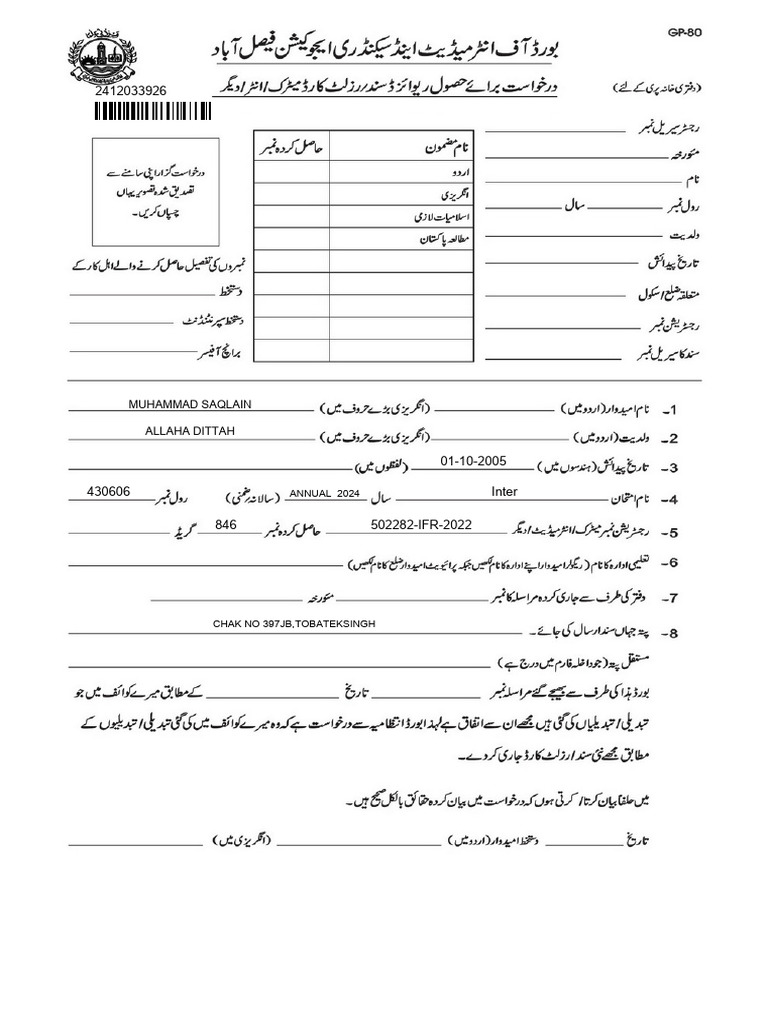 GP-80
بورڈ آف انٹرمیڈیٹ اینڈ سیکنڈری ایجوکیشن فیصل آباد
2412033926
درخواست برائے حصول ریوائزڈ سند/رزلٹ کارڈ میٹرک/انٹر/دیگر
(دفتری خانہ پری کے لئے)
درخواست گزار اپنی سامنے سے
تصدیق شدہ تصویر یہاں
چسپاں کریں۔
نام مضمون حاصل کردہ نمبر
اردو
انگریزی
اسلامیات لازمی
مطالعہ پاکستان
رجسٹر سیریل نمبر
مئورخہ
نام
رول نمبر سال
ولدیت
تاریخ پیدائش
متعلقہ ضلع/سکول
رجسٹریشن نمبر
سند کا سیریل نمبر
نمبروں کی تفصیل حاصل کرنے والے اہل کار کے
دستخط
دستخط سپرنٹنڈنٹ
برانچ آفیسر
1۔ نام امیدوار (اردو میں) (انگریزی بڑے حروف میں) MUHAMMAD SAQLAIN
2۔ ولدیت (اردو میں) (انگریزی بڑے حروف میں) ALLAHA DITTAH
3۔ تاریخ پیدائش (ہندسوں میں) 01-10-2005 (لفظوں میں)
4۔ نام امتحان Inter سال ANNUAL 2024 (سالانہ/ضمنی) رول نمبر 430606
5۔ رجسٹریشن نمبر میٹرک/انٹرمیڈیٹ/دیگر 502282-IFR-2022 حاصل کردہ نمبر 846 گریڈ
6۔ تعلیمی ادارہ کا نام (ریگولر امیدوار اپنے ادارہ کا نام لکھیں جبکہ پرائیویٹ امیدوار ضلع کا نام لکھیں)
7۔ دفتر کی طرف سے جاری کردہ مراسلہ کا نمبر مئورخہ
8۔ پتہ جہاں سند ارسال کی جائے۔ CHAK NO 397JB,TOBATEKSINGH
مستقل پتہ (جو داخلہ فارم میں درج ہے)
بورڈ ہذا کی طرف سے بھیجے گئے مراسلہ نمبر تاریخ کے مطابق میرے کوائف میں جو
تبدیلی/تبدیلیاں کی گئی ہیں مجھے ان سے اتفاق ہے لہذا بورڈ انتظامیہ سے درخواست ہے کہ وہ میرے کوائف میں کی گئی تبدیلی/تبدیلیوں کے
مطابق مجھے نئی سند/رزلٹ کارڈ جاری کر دے۔
میں حلفاً بیان کرتا/کرتی ہوں کہ درخواست میں بیان کردہ حقائق بالکل صحیح ہیں۔
تاریخ دستخط امیدوار (اردو میں) (انگریزی میں)